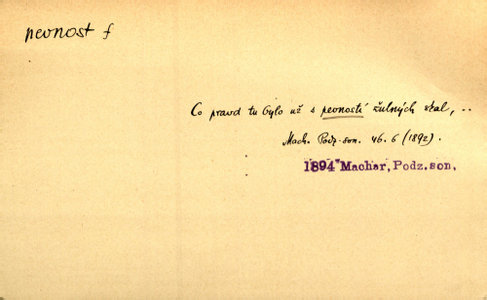 pevnost f
Co pravd tu bylo už s pevností žulných skal, ..
Mach. Podz. son. 46. 6 (1892).
1894 Machar, Podz. son,